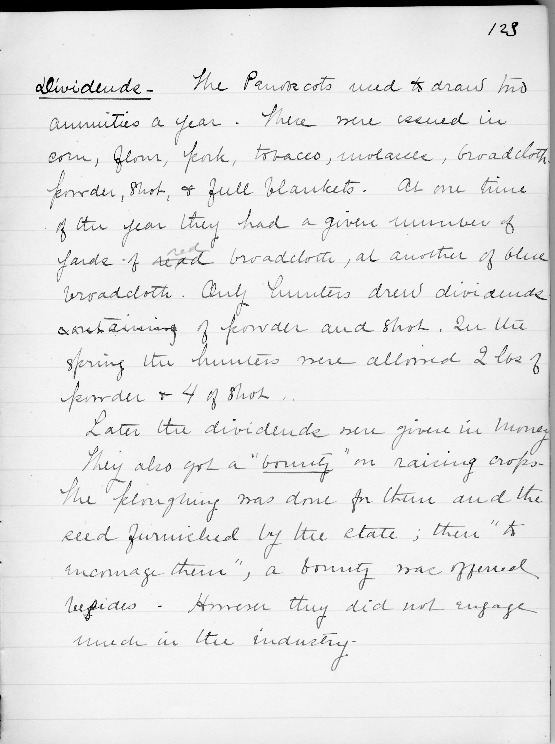 123
Dividends - The Penobscots used to draw two
annuities a year. These were issued in
corn, flour, pork, tobacco, molasses, broadcloth,
powder, shot, & full blankets. At one time
of the year they had a given number of
red
yards of read broadcloth, at another of blue
broadcloth. Only hunters drew dividends
containing of powder and shot. In the
spring the hunters were allowed 2 lbs of
powder & 4 of shot..
Later the dividends were given in money
They also got a "bounty" on raising crops-
The ploughing was done for them and the
seed furnished by the state; then "to
encourage them", a bounty was offered
besides - However they did not engage
much in the industry-